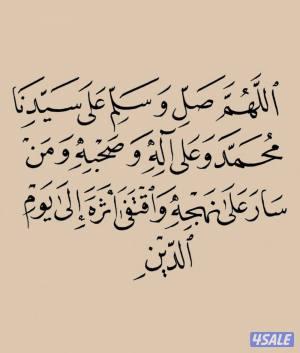 اللَّهُمَّ صَلِّ وَسَلِّمْ عَلَى سَيِّدِنَا
مُحَمَّدٍ وَعَلَى آلِهِ وَصَحْبِهِ وَمَنْ
سَارَ عَلَى نَهْجِهِ وَاقْتَفَى أَثَرَهُ إِلَى يَوْمِ
الدِّينِ
4SALE